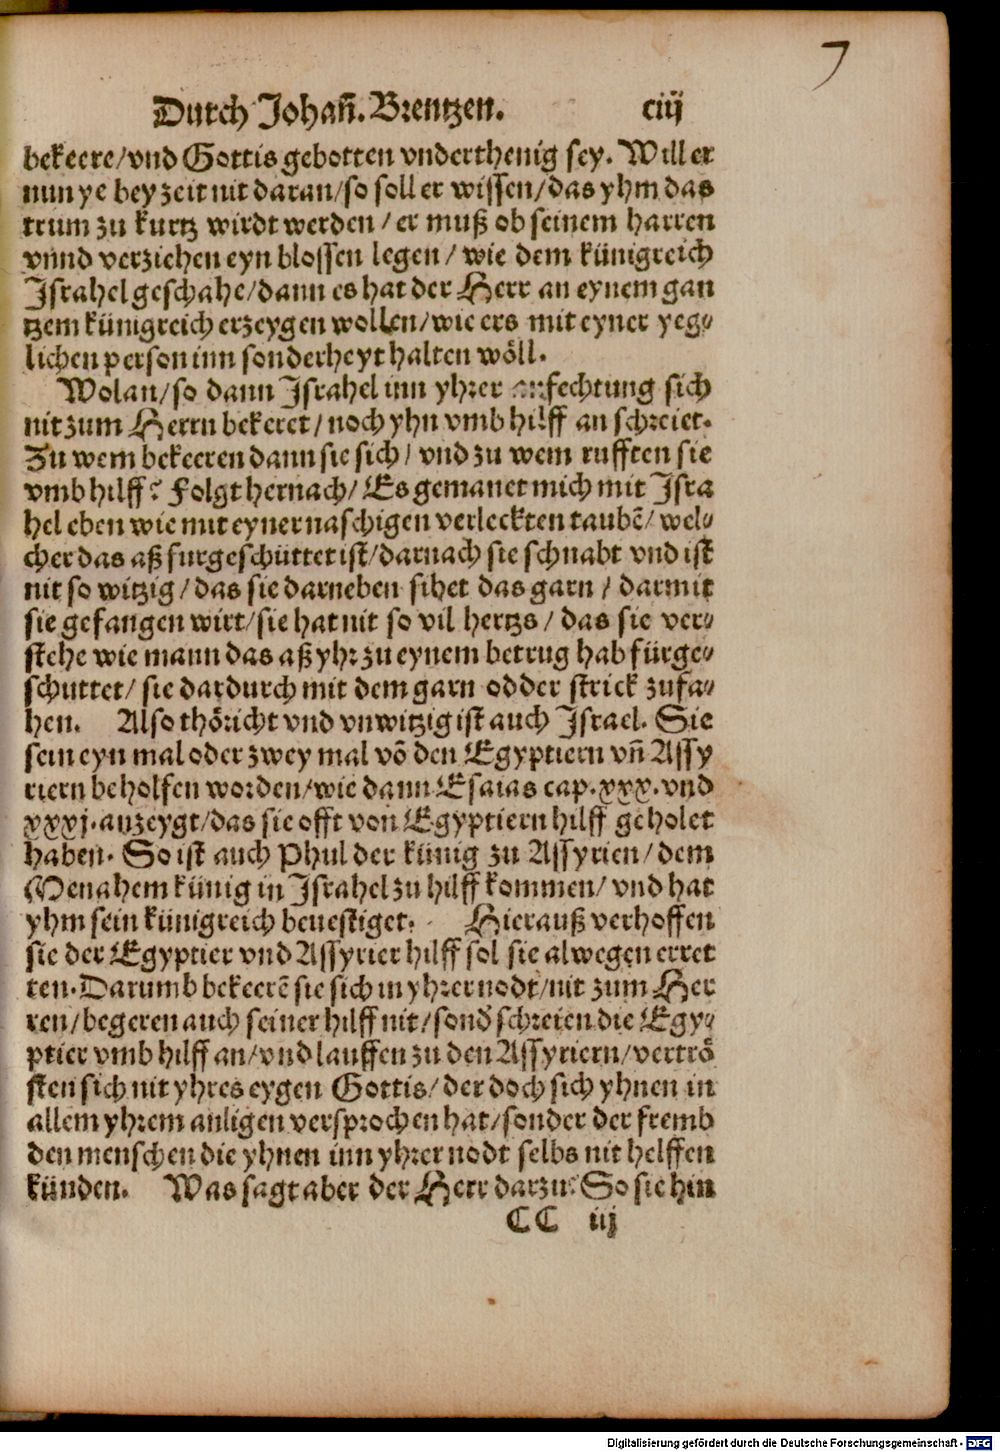 7
Durch Johañ. Brentzen. ciij
bekeere/vnd Gottis gebotten vnderthenig sey. Will er
nun ye bey zeit nit daran/so soll er wissen/das yhm das
trum zu kurtz wirdt werden/er muß ob seinem harren
vnnd verziehen eyn blossen legen/wie dem künigreich
Israhel geschahe/dann es hat der Herr an eynem gan
tzem künigreich erzeygen wollen/wie ers mit eyner yeg⸗
lichen person inn sonderheyt halten wöll.
Wolan/so dann Israhel inn yhrer anfechtung sich
nit zum Herrn bekeret/noch yhn vmb hilff an schreiet.
Zu wem bekeeren dann sie sich/vnd zu wem rufften sie
vmb hilff? Folgt hernach/Es gemanet mich mit Isra
hel eben wie mit eyner naschigen verleckten taubẽ/wel⸗
cher das aß furgeschüttet ist/darnach sie schnabt vnd ist
nit so witzig/das sie darneben sihet das garn/darmit
sie gefangen wirt/sie hat nit so vil hertzs/das sie ver⸗
stehe wie mann das aß yhr zu eynem betrug hab fürge⸗
schuttet/sie dardurch mit dem garn odder strick zufa⸗
hen. Also thöricht vnd vnwitzig ist auch Israel. Sie
sein eyn mal oder zwey mal võ den Egyptiern vñ Assy
riern beholfen worden/wie dann Esaias cap.xxx.vnd
xxxj.anzeygt/das sie offt von Egyptiern hilff geholet
haben. So ist auch Phul der künig zu Assyrien/dem
Menahem künig in Israhel zu hilff kommen/vnd hat
yhm sein künigreich beuestiget. Hierauß verhoffen
sie der Egyptier vnd Assyrier hilff sol sie alwegen erret
ten. Darumb bekeerẽ sie sich in yhrer nodt/nit zum Her
ren/begeren auch seiner hilff nit/sond̾ schreien die Egy⸗
ptier vmb hilff an/vnd lauffen zu den Assyriern/vertrö
sten sich nit yhres eygen Gottis/der doch sich yhnen in
allem yhrem anligen versprochen hat/sonder der fremb
den menschen die yhnen inn yhrer nodt selbs nit helffen
künden. Was sagt aber der Herr darzu? So sie hin
CC iij
Digitalisierung gefördert durch die Deutsche Forschungsgemeinschaft - DFG